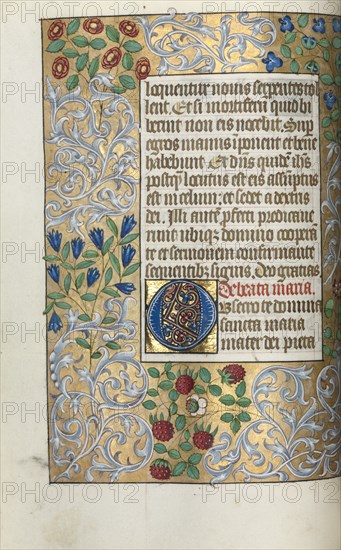 loquentur novis serpentes tol
lent. Et si mortiferū quid bi
berint non eis nocebit. Sup
egros manus īponent et bene
habebunt. Et dn̄s quidē ihs̄
postq̄ locutus est eis assūptus
est in celum: et sedet a dextris
dei. Illi autē pfecti predicave
runt ubiq̄ domino cooperā
te et sermonem confirmante
sequentibꝫ signis. Deo gratias
De beata maria.
Obsecro te domina
sancta maria
mater dei pieta